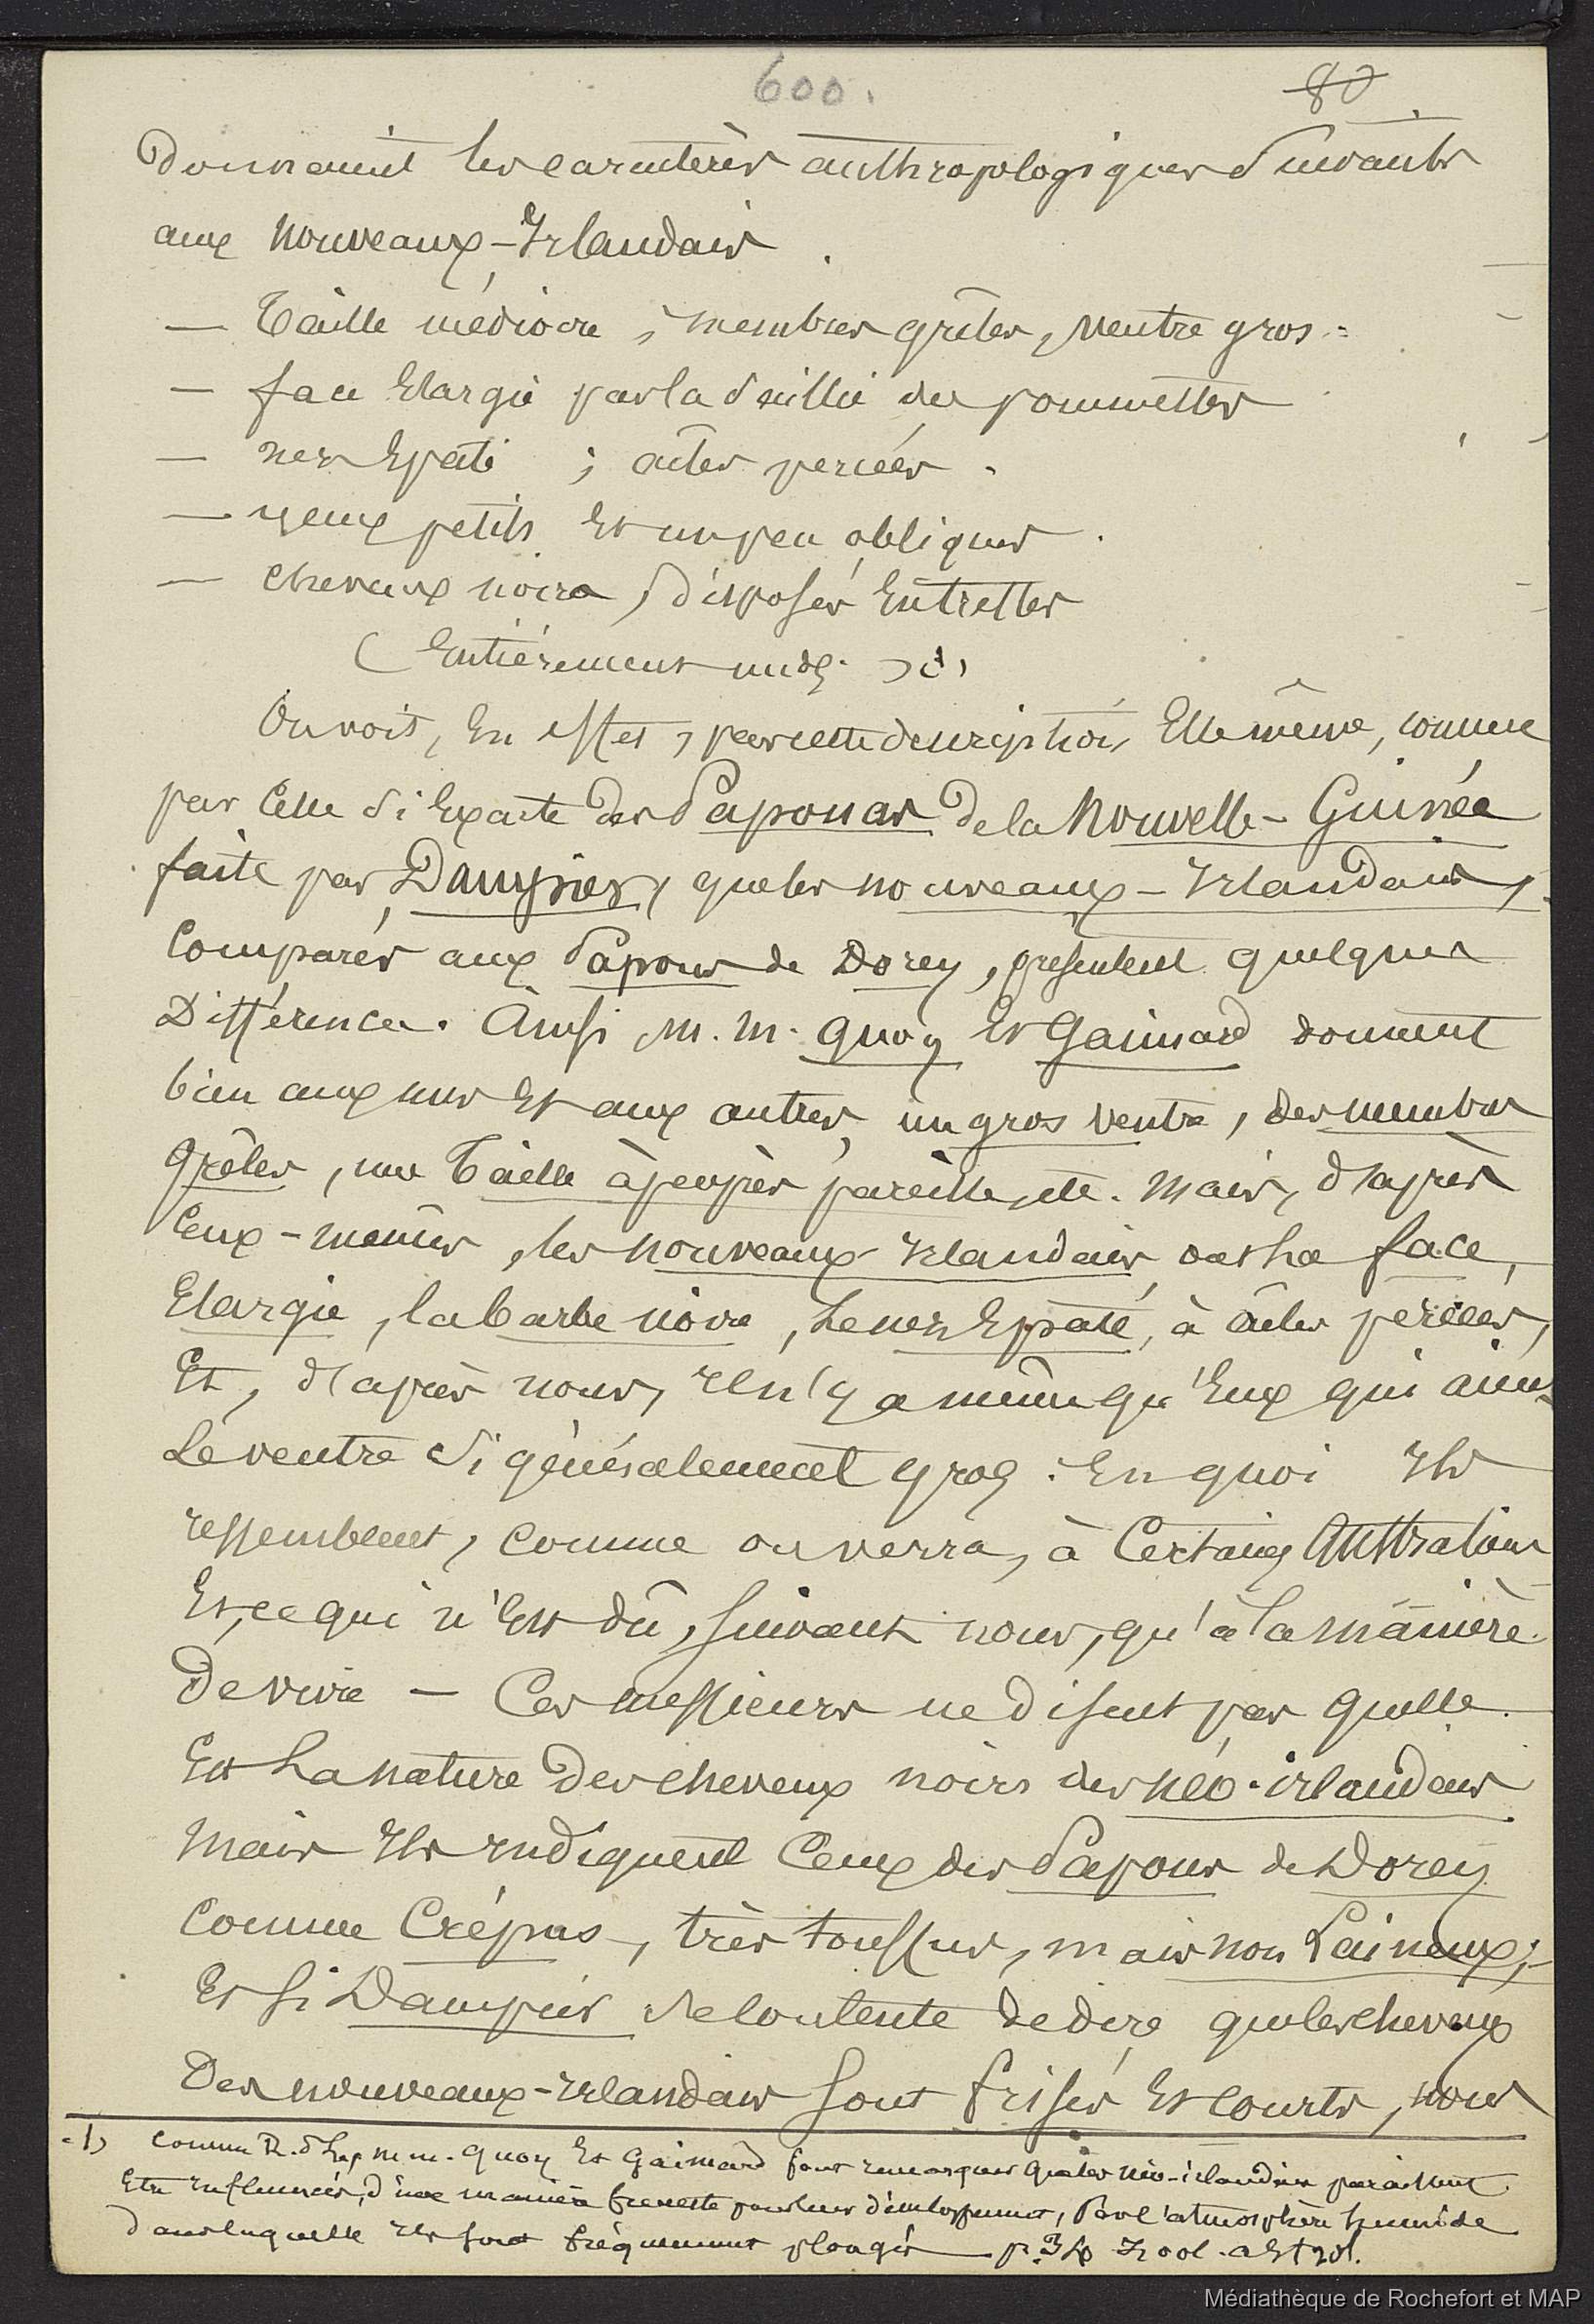 600.
80
Donnaient les caractères anthropologiques suivants
aux Nouveaux-Irlandais.
— Taille médiocre, membres grêles, ventre gros.
— face élargie par la saillie des pommettes
— nez épaté ; ailes percées.
— yeux petits et un peu obliques.
— cheveux noirs, disposés en tresses
(Entièrement nuds.) (1)
On voit, en effet, par cette description elle même, comme
par celle si exacte des Papouas de la Nouvelle-Guinée
faite par Dampier, que les nouveaux-Irlandais,
comparés aux Papous de Dorey, présentent quelques
Différences. Ainsi M.M. Quoy et Gaimard donnent
bien aux uns et aux autres, un gros ventre, des membres
grêles, une taille à peu près pareille, etc. Mais, d'après
eux-mêmes, les nouveaux Irlandais ont la face
Elargie, la barbe noire, le nez épaté, à ailes percées,
Et, d'après nous, il n'y a même qu'eux qui aient
le ventre si généralement gros : en quoi ils
ressemblent, comme on verra, à certains Australiens
Et, ce qui n'est dû, suivant nous, qu'à la manière
de vivre — Ces messieurs ne disent pas quelle
Est la nature des cheveux noirs des néo-irlandais
Mais ils indiquent ceux des Papous de Dorey
comme crépus, très touffus, mais non laineux ;
Et si Dampier se contente de dire que les cheveux
Des nouveaux-Irlandais sont frisés et courts, nous
(1) comme M.M. Quoy et Gaimard font remarquer que les néo-irlandais paraissent
Etre influencés, d'une manière funeste pour leur développement, par l'atmosphère humide
dans laquelle ils sont fréquemment plongés — Zool.
Médiathèque de Rochefort et MAP